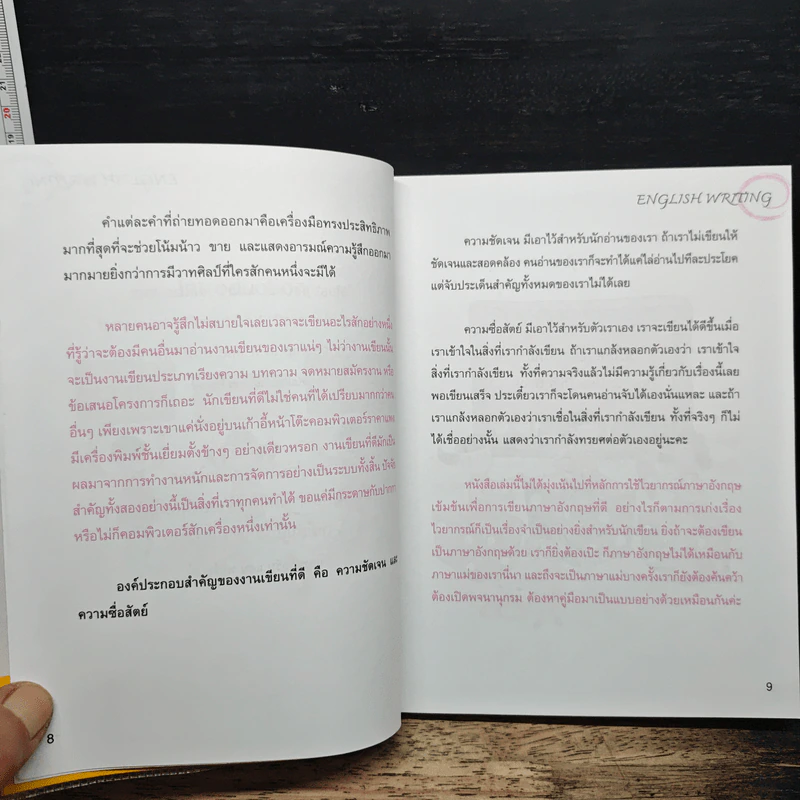 คำแต่ละคำที่ถ่ายทอดออกมาคือเครื่องมือทรงประสิทธิภาพ
มากที่สุดที่จะช่วยโน้มน้าว ขาย และแสดงอารมณ์ความรู้สึกออกมา
มากมายยิ่งกว่าการมีวาทศิลป์ที่ใครสักคนหนึ่งจะมีได้
หลายคนอาจรู้สึกไม่สบายใจเลยเวลาจะเขียนอะไรสักอย่างหนึ่ง
ที่รู้ว่าจะต้องมีคนอื่นมาอ่านงานเขียนของเราแน่ๆ ไม่ว่างานเขียนนั้น
จะเป็นงานเขียนประเภทเรียงความ บทความ จดหมายสมัครงาน หรือ
ข้อเสนอโครงการก็เถอะ นักเขียนที่ดีไม่ใช่คนที่ได้เปรียบมากกว่าคน
อื่นๆ เพียงเพราะเขาแค่นั่งอยู่บนเก้าอี้หน้าโต๊ะคอมพิวเตอร์ราคาแพง
มีเครื่องพิมพ์ชั้นเยี่ยมตั้งข้างๆ อย่างเดียวหรอก งานเขียนที่ดีมักเป็น
ผลมาจากการทำงานหนักและการจัดการอย่างเป็นระบบทั้งสิ้น ปัจจัย
สำคัญทั้งสองอย่างนี้เป็นสิ่งที่เราทุกคนทำได้ ขอแค่มีกระดาษกับปากกา
หรือไม่ก็คอมพิวเตอร์สักเครื่องหนึ่งเท่านั้น
องค์ประกอบสำคัญของงานเขียนที่ดี คือ ความชัดเจน และ
ความซื่อสัตย์
8
ENGLISH WRITING
ความชัดเจน มีเอาไว้สำหรับนักอ่านของเรา ถ้าเราไม่เขียนให้
ชัดเจนและสอดคล้อง คนอ่านของเราก็จะทำได้แค่ไล่อ่านไปทีละประโยค
แต่จับประเด็นสำคัญทั้งหมดของเราไม่ได้เลย
ความซื่อสัตย์ มีเอาไว้สำหรับตัวเราเอง เราจะเขียนได้ดีขึ้นเมื่อ
เราเข้าใจในสิ่งที่เรากำลังเขียน ถ้าเราแกล้งหลอกตัวเองว่า เราเข้าใจ
สิ่งที่เรากำลังเขียน ทั้งที่ความจริงแล้วไม่มีความรู้เกี่ยวกับเรื่องนี้เลย
พอเขียนเสร็จ ประเดี๋ยวเราก็จะโดนคนอ่านจับได้เองนั่นแหละ และถ้า
เราแกล้งหลอกตัวเองว่าเราเชื่อในสิ่งที่เรากำลังเขียน ทั้งที่จริงๆ ก็ไม่
ได้เชื่ออย่างนั้น แสดงว่าเรากำลังทรยศต่อตัวเองอยู่นะคะ
หนังสือเล่มนี้ไม่ได้มุ่งเน้นไปที่หลักการใช้ไวยากรณ์ภาษาอังกฤษ
เข้มข้นเพื่อการเขียนภาษาอังกฤษที่ดี อย่างไรก็ตามการเก่งเรื่อง
ไวยากรณ์ก็เป็นเรื่องจำเป็นอย่างยิ่งสำหรับนักเขียน ยิ่งถ้าจะต้องเขียน
เป็นภาษาอังกฤษด้วย เราก็ยิ่งต้องเป๊ะ ก็ภาษาอังกฤษไม่ได้เหมือนกับ
ภาษาแม่ของเรานี่นา และถึงจะเป็นภาษาแม่บางครั้งเราก็ยังต้องค้นคว้า
ต้องเปิดพจนานุกรม ต้องหาคู่มือมาเป็นแบบอย่างด้วยเหมือนกันค่ะ
9